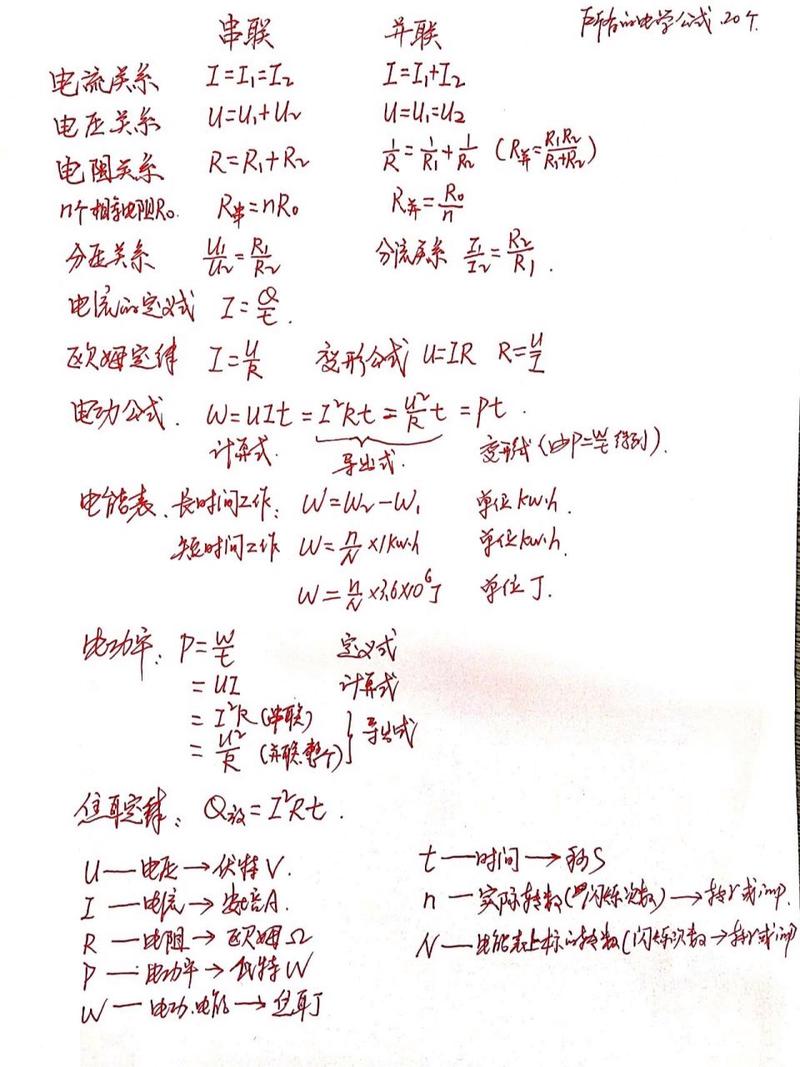 所有的电学公式.20个.
串联 并联
电流关系 I=I₁=I₂ I=I₁+I₂
电压关系 U=U₁+U₂ U=U₁=U₂
电阻关系 R=R₁+R₂ 1/R=1/R₁+1/R₂ (R并=R₁R₂/(R₁+R₂))
n个相等电阻R₀. R串=nR₀ R并=R₀/n
分压关系 U₁/U₂=R₁/R₂ 分流关系 I₁/I₂=R₂/R₁.
电流的定义式 I=Q/t.
欧姆定律 I=U/R 变形公式 U=IR R=U/I
电功公式. W=UIt=I²Rt=U²/R t=Pt.
计算式. 导出式. 变形式(由P=W/t得到).
电能表、长时间工作: W=W₂-W₁ 单位kw·h.
短时间工作 W=n/N×1kw·h 单位kw·h.
W=n/N×3.6×10⁶J 单位J.
电功率: P=W/t 定义式
=UI 计算式
=I²R(串联) }导出式
=U²/R (并联.整个)
焦耳定律: Q放=I²Rt.
U—电压→伏特V.
I—电流→安培A.
R—电阻→欧姆Ω
P—电功率→瓦特W
W—电功.电能→焦耳J
t—时间→秒S
n—实际转数(或闪烁次数)→转r或imp.
N—电能表上标的转数(闪烁次数→转r或imp